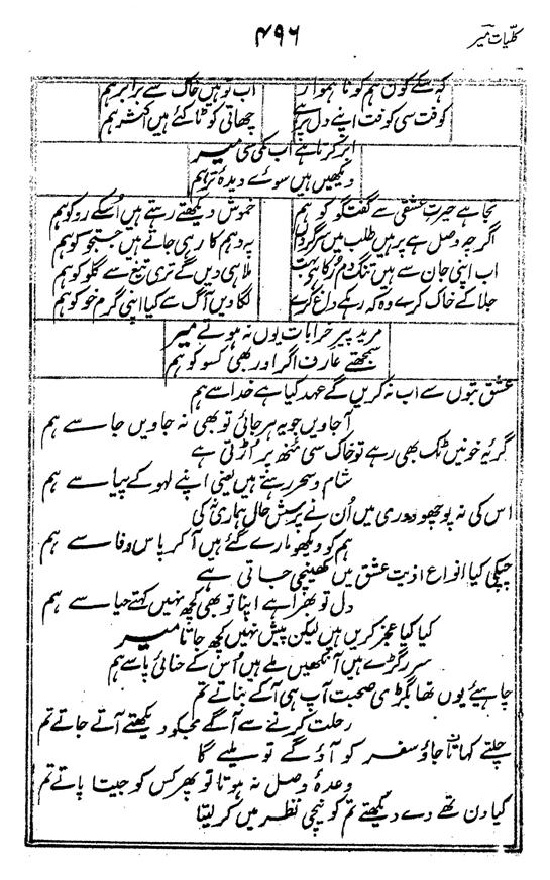 کلیات میر
۴۹۶
کہ سکے کون ہم کو نا ہموار
اب تو ہیں خاک سے برابر ہم
کوفت سی کوفت اپنے دل پر ہے
چھاتی کوٹا کئے ہیں اکثر ہم
ابر کرتا ہے اب کمی سی میر
دیکھیں ہیں سوے دیدۂ تر ہم
بجا ہے حیرت عشقی سے گفتگو کو ہم
خموش دیکھتے رہتے ہیں اُسکے رو کو ہم
اگرچہ وصل ہے پر ہیں طلب میں سرگرداں
پہ وہم کار ہی جاتے ہیں جستجو کو ہم
اب اپنی جان سے ہیں تنگ دم رکا ہے بہت
ملا ہی دیں گے تری تیغ سے گلو کو ہم
جلا کے خاک کرے وہ کہ رہکے داغ کرے
لگا دیں آگ سے کیا اپنی گرم خو کو ہم
مرید پیر خرابات یوں نہ ہوتے میر
سمجھتے عارف اگر اور بھی کسو کو ہم
عشق بتوں سے اب نہ کریں گے عہد کیا ہے خدا سے ہم
آجاویں جو یہ ہرجائی تو بھی نہ جاویں جا سے ہم
گریۂ خونیں ٹک بھی رہے تو خاک سی منھ پر اُڑتی ہے
شام و سحر رہتے ہیں یعنی اپنے لہو کے پیاسے ہم
اس کی نہ پوچھو دوری میں اُن نے پرسش حال ہماری کی
ہم کو دیکھو مارے گئے ہیں آ کر پاس وفا سے ہم
چپکے کیا انواع اذیت عشق میں کھینچی جاتی ہے
دل تو بھرا ہے اپنا تو بھی کچھ نہیں کہتے حیا سے ہم
کیا کیا عجز کریں ہیں لیکن پیش نہیں کچھ جاتا میر
سر رگڑے ہیں آنکھیں ملے ہیں اُس کے حنائی پا سے ہم
چاہیئے یوں تھا بگڑی صحبت آپ ہی آکے بناتے تم
رحلت کرنے سے آگے مجکو دیکھتے آتے جاتے تم
چلتے کہا تھا جاؤ سفر کو آؤ گے تو ملیے گا
وعدۂ وصل نہ ہوتا تو پھر کس کو جیتا پاتے تم
کیا دن تھے وے دیکھتے تم کو نیچی نظر میں کر لیتا